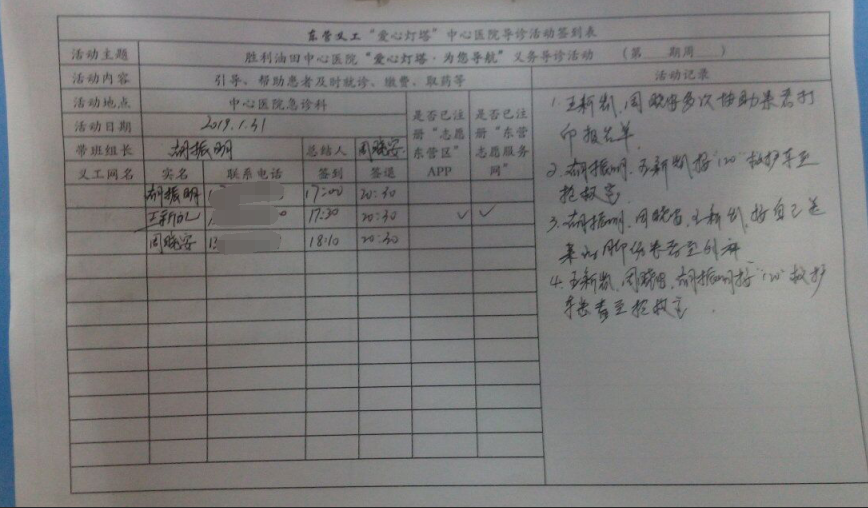 东营义工“爱心灯塔”中心医院导诊活动签到表
活动主题 胜利油田中心医院“爱心灯塔·为您导航”义务导诊活动 （第 期周 ）
活动内容 引导、帮助患者及时就诊、缴费、取药等 活动记录
活动地点 中心医院急诊科 是否已注册“志愿东营区”APP 是否已注册“东营志愿服务网”
活动日期 2019.1.31
带班组长 胡振明 总结人 周晓安
义工网名 实名 联系电话 签到 签退
胡振明 17:00 20:30
王新 17:20 20:30 ✓ ✓
周晓安 18:10 20:30
1. 王新 周晓安多次协助患者打
印报告单
2. 胡振明、王新 接“120”救护车至
抢救室
3. 胡振明、周晓安、王新 接自己
患者至外科
4. 王新 周晓 胡振明接“120”救护
车患者至抢救室.